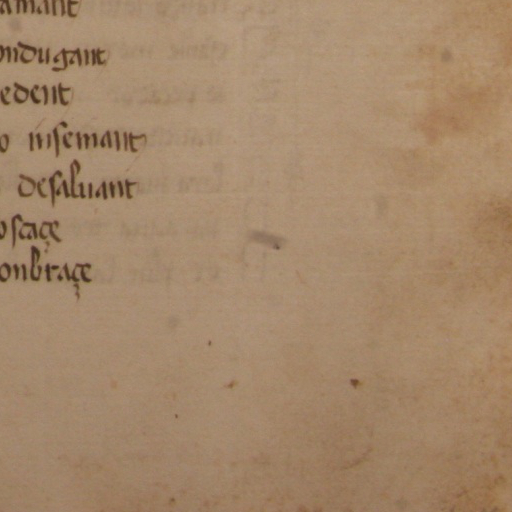 amant
ondugant
edent
o insemant
desaluant
oscaçe
onbraçe